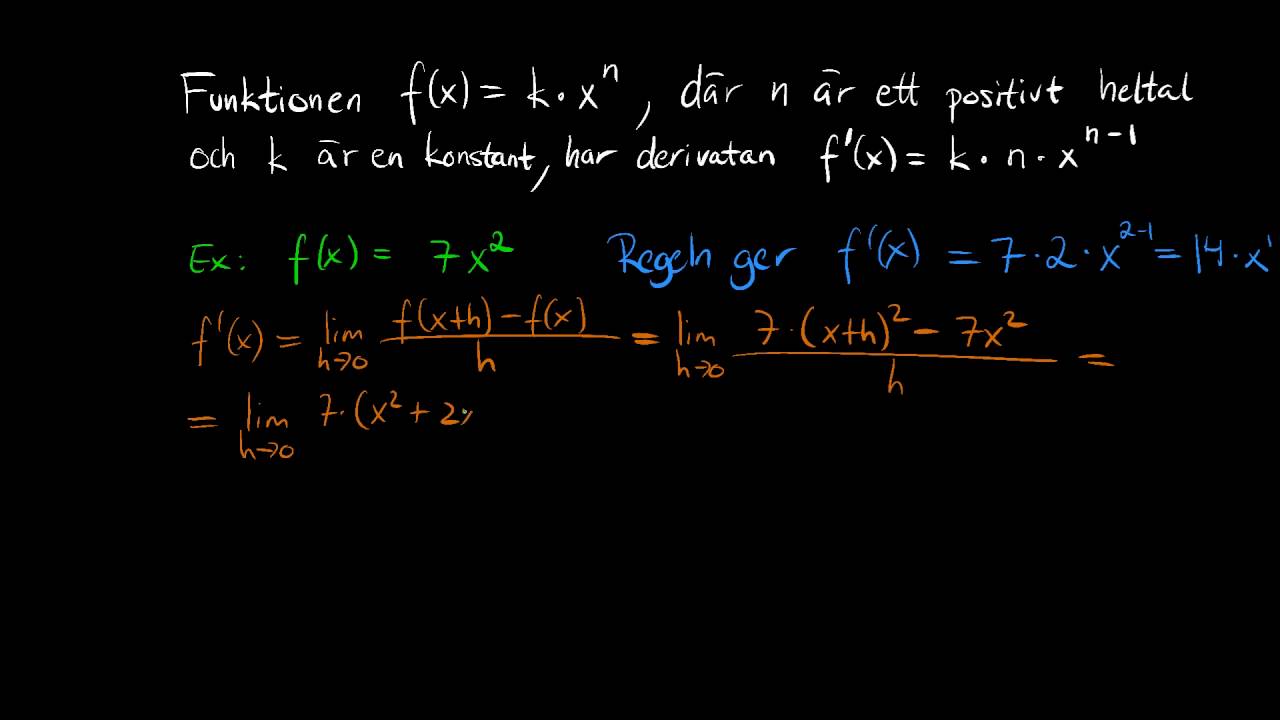 Funktionen f(x) = k · xⁿ, där n är ett positivt heltal
och k är en konstant, har derivatan f'(x) = k · n · xⁿ⁻¹
Ex: f(x) = 7x² Regeln ger f'(x) = 7 · 2 · x²⁻¹ = 14 · x¹
f'(x) = lim h→0 (f(x+h) − f(x))/h = lim h→0 (7 · (x+h)² − 7x²)/h =
= lim h→0 7 · (x² + 2